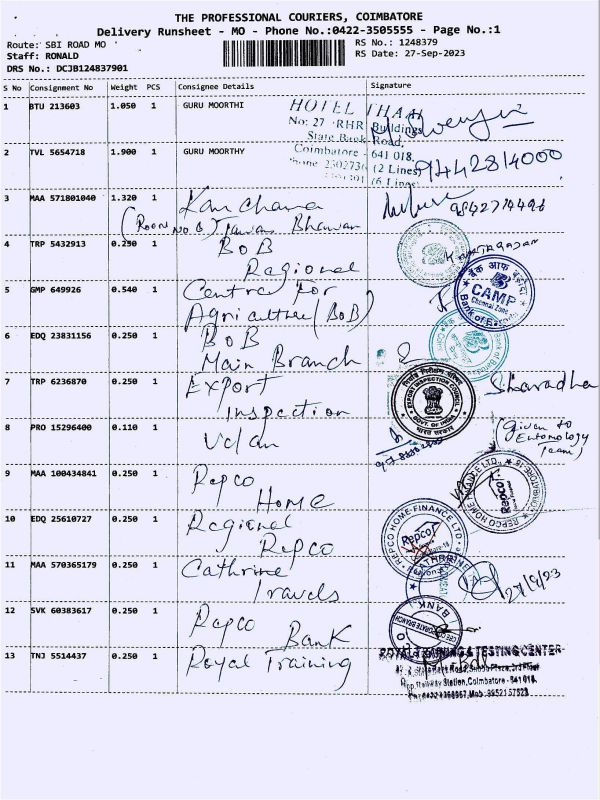 THE PROFESSIONAL COURIERS, COIMBATORE
Delivery Runsheet - MO - Phone No.:0422-3505555 - Page No.:1
Route: SBI ROAD MO
Staff: RONALD
DRS No.: DCJB124837901
RS No.: 1248379
RS Date: 27-Sep-2023
S No Consignment No Weight PCS Consignee Details Signature
1 BTU 213603 1.050 1 GURU MOORTHI
HOTEL THAAI
No: 27 RHR Buildings
State Bank Road,
Coimbatore - 641 018.
Phone 2302736 (2 Lines)
(6 Lines)
2 TVL 5654718 1.900 1 GURU MOORTHY 9442814000
3 MAA 571801040 1.320 1 Kanchana
(Room No. 6) Bhawan
4 TRP 5432913 0.250 1 BoB
Regional
5 GMP 649926 0.540 1 Centre For
Agriculture (BoB)
बैंक ऑफ़ बड़ौदा
CAMP
Chennai Zone
Bank of Baroda
6 EDQ 23831156 0.250 1 BoB
Main Branch
7 TRP 6236870 0.250 1 Export
Inspection
EXPORT INSPECTION COUNCIL
GOVT. OF INDIA
भारत सरकार
Sharadha
8 PRO 15296400 0.110 1
(given to
Entomology
Team)
9 MAA 100434841 0.250 1 Repco
Home
REPCO HOME FINANCE LTD.
Repco
10 EDQ 25610727 0.250 1 Regional
Repco
REPCO HOME FINANCE LTD.
Repco
11 MAA 570365179 0.250 1 Cathrine
Travels
27/9/23
12 SVK 60383617 0.250 1 Repco
Bank
BANK
13 TNJ 5514437 0.250 1 Royal Training
ROYAL TRAINING & TESTING CENTER
Railway Station, Coimbatore - 641 018.